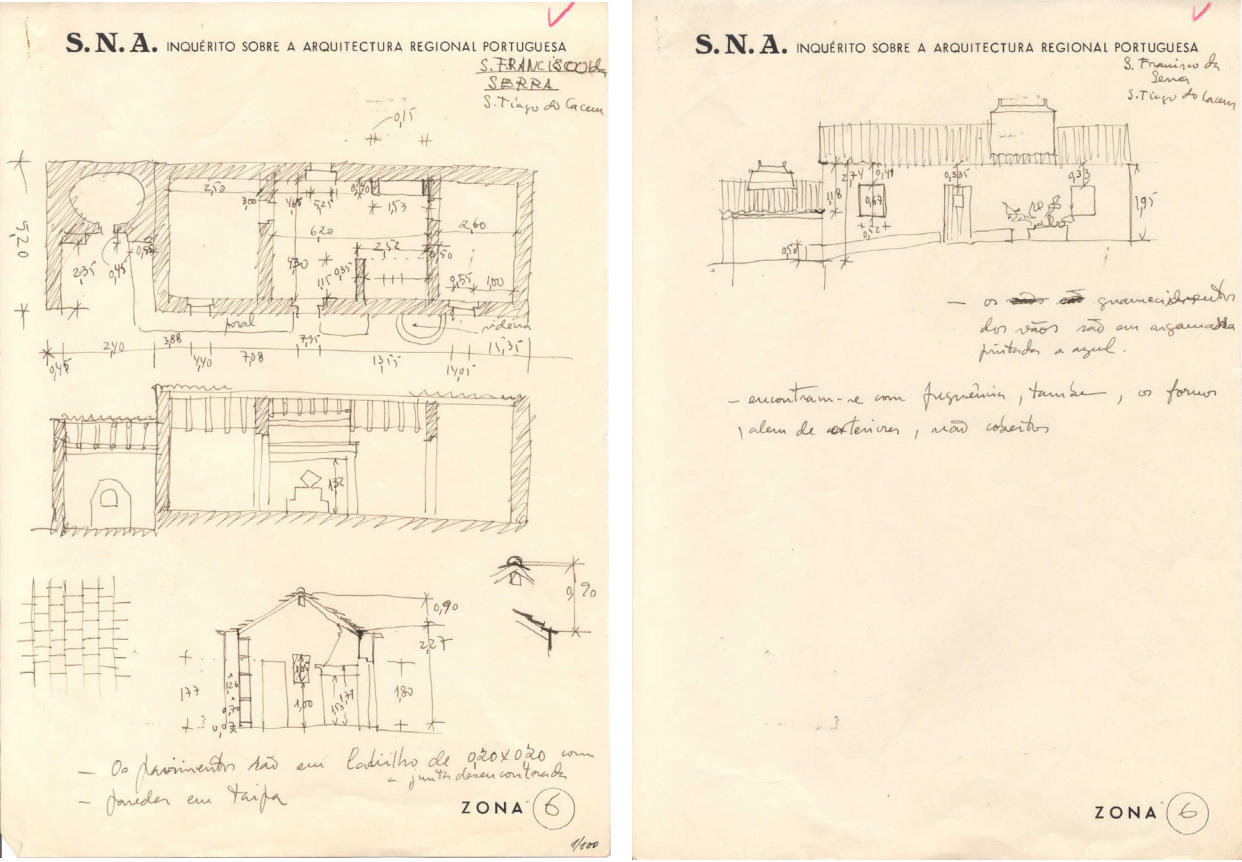 S.N.A. INQUÉRITO SOBRE A ARQUITECTURA REGIONAL PORTUGUESA
S. FRANCISCO DA
SERRA
S. Tiago do Cacem
0,15
2,50
3,00
4,65
5,25
0,40
1,53
5,20
6,20
2,60
2,52
0,50
2,35
0,45
4,30
1,15
0,35
0,55
1,00
poial
videira
0,45
2,40
3,88
4,40
7,08
7,95
13,55
14,05
15,35
1,32
0,90
2,27
0,20
1,77
1,26
0,70
0,07
1,00
1,53
1,77
1,80
— Os pavimentos são em ladrilho de 0,20x0,20 com
a junta desencontrada
— paredes em taipa
ZONA 6
1/100
S.N.A. INQUÉRITO SOBRE A ARQUITECTURA REGIONAL PORTUGUESA
S. Francisco da
Serra
S. Tiago do Cacem
2,74
0,49
0,335
0,33
1,18
0,67
1,95
0,52
0,50
— os guarnecimentos
dos vãos são em argamassa
pintada a azul.
— encontram-se com frequência, tambem, os fornos
, alem de exteriores, não cobertos
ZONA 6